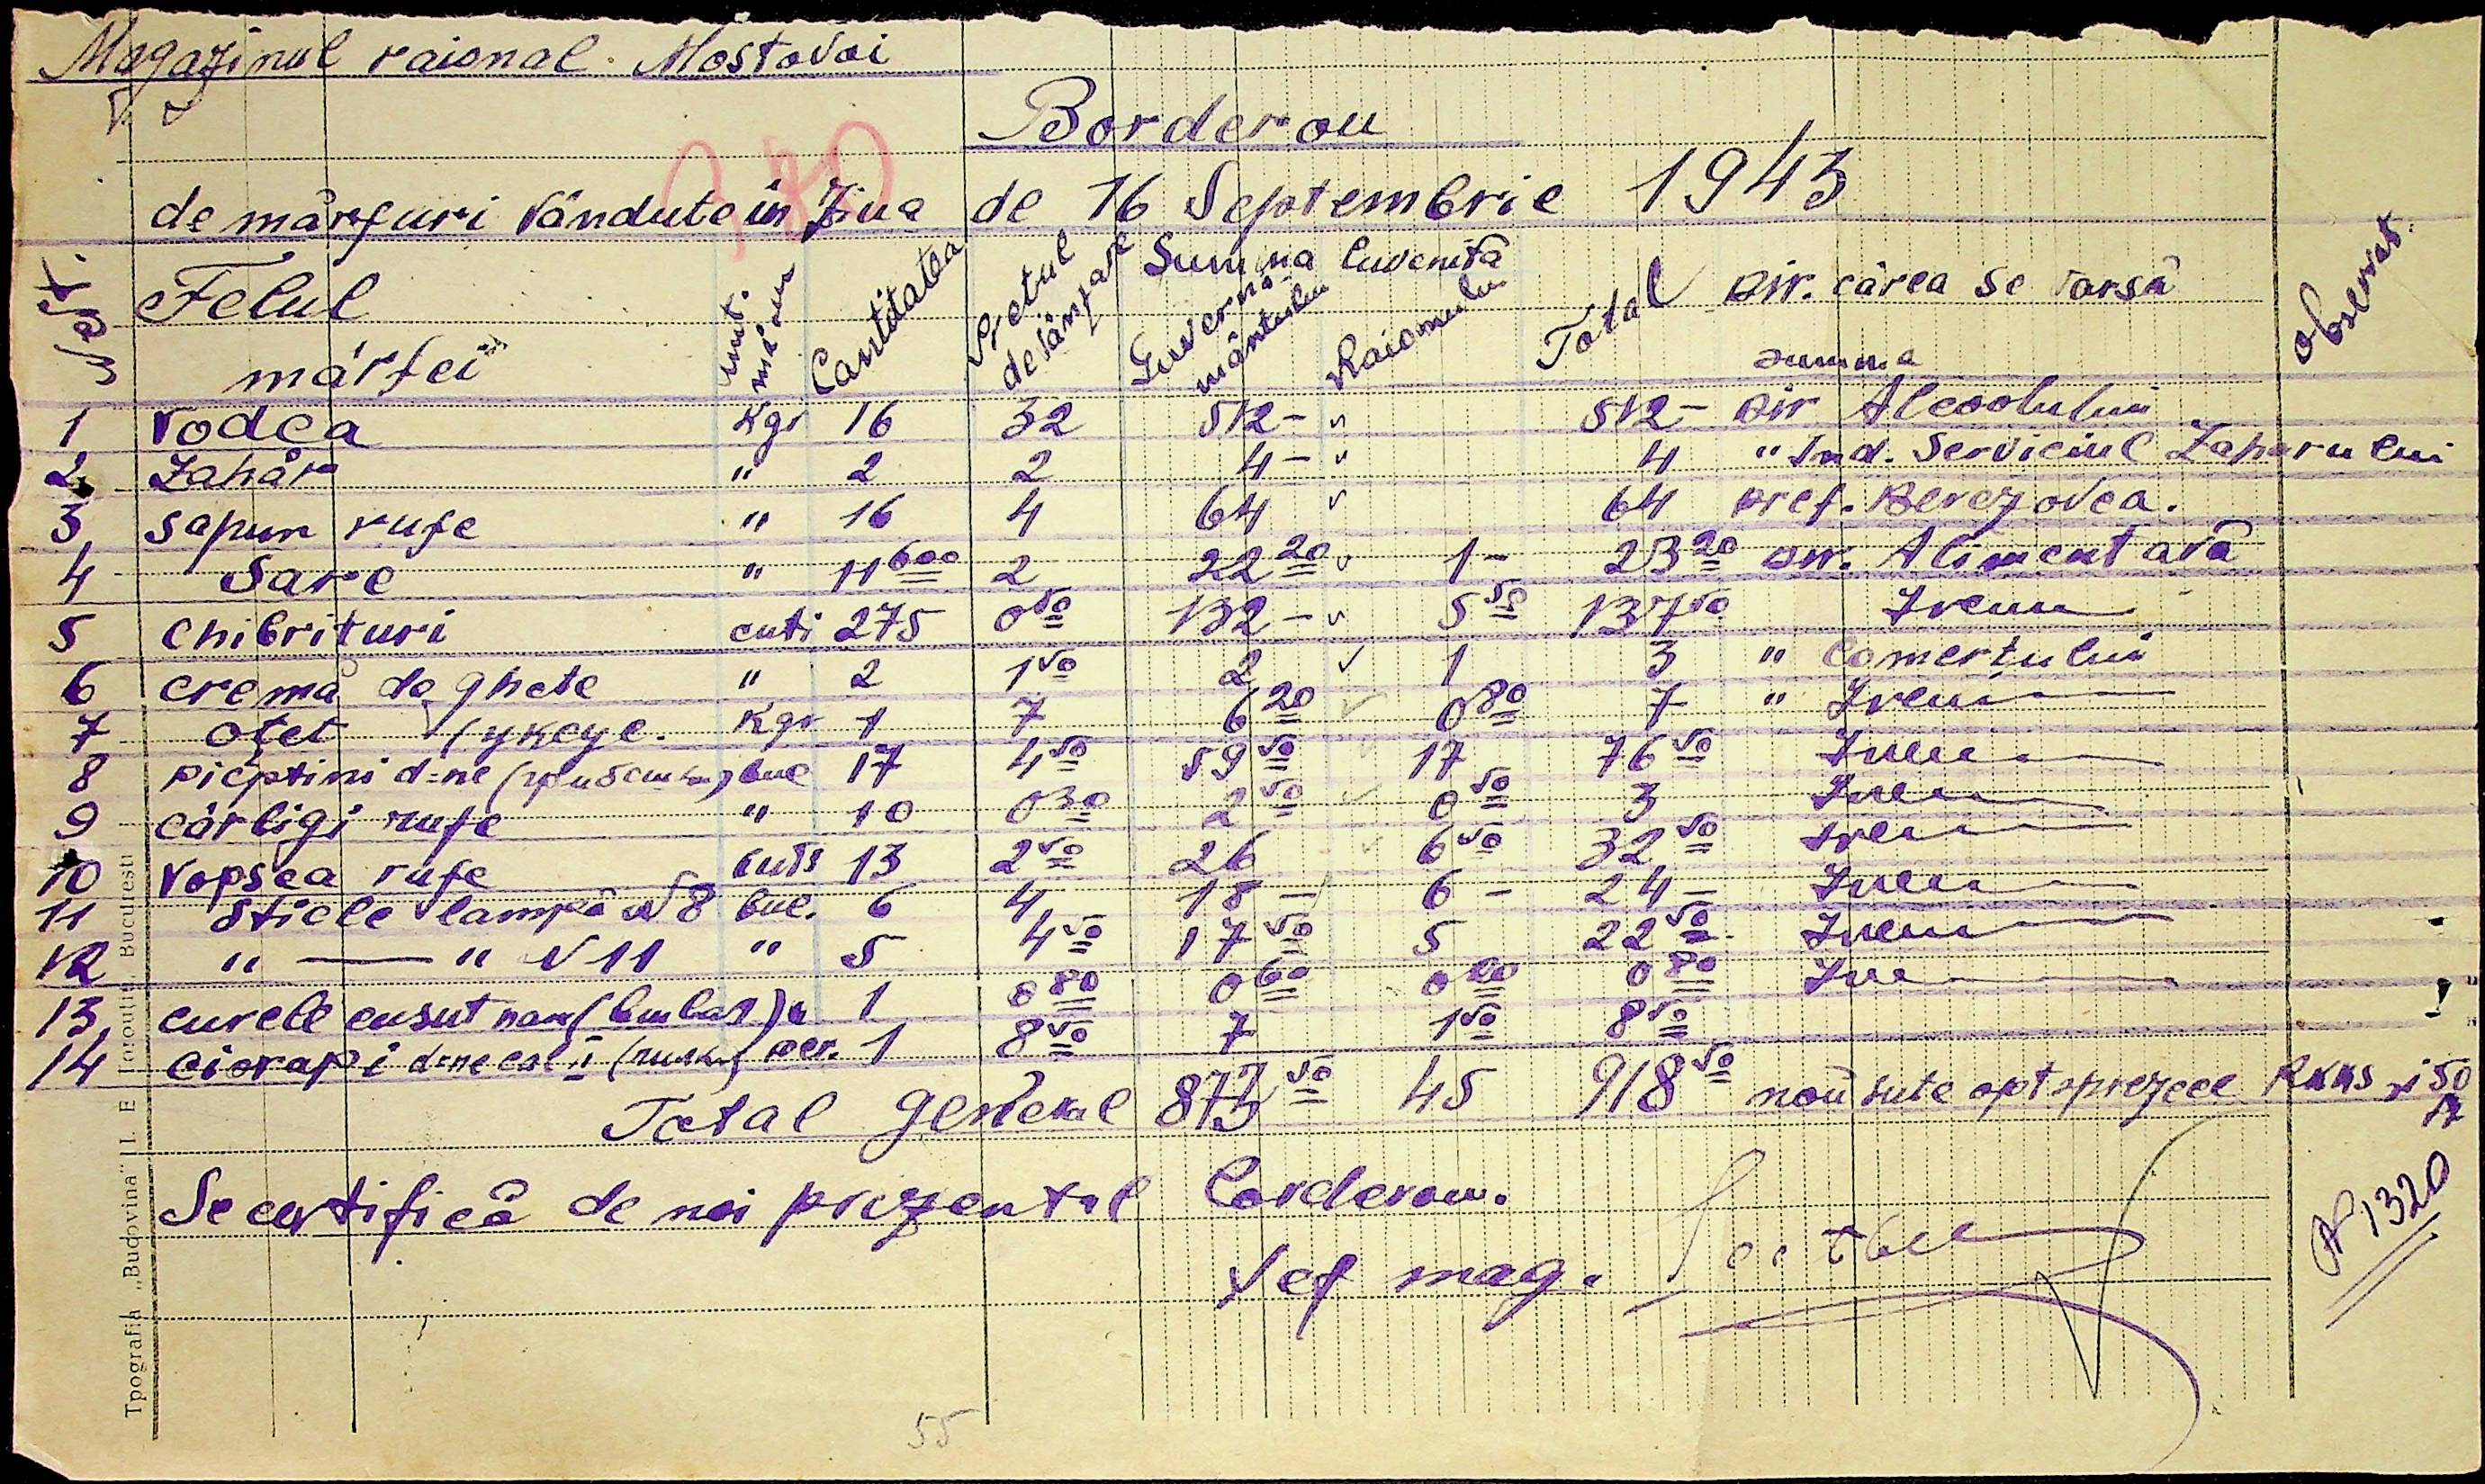 Magazinul raional Mostovoi
Borderou
de mărfuri vândute în ziua de 16 Septembrie 1943
Felul mărfei unit. măsur Cantitatea Prețul de vânzare Summa Cuvenită Guvernământului Raionului Total dir. cărea se varsă summa observat.
1 Vodca Kgr 16 32 512- " 512- dir Alcoolului
2 Zahăr " 2 2 4- " 4 " Ind. Serviciul Zaharului
3 sapun rufe " 16 4 64 " 64 pref. Berezovca.
4 Sare " 11 600 2 22 20 " 1- 23 20 dir. Alimentară
5 chibrituri cuti 275 0 50 132- " 5 50 137 50 Idem
6 cremă de ghete " 2 1 50 2 1 3 " Comerțului
7 oțet Kgr 1 7 6 20 0 80 7 " Idem
8 pieptini d-ne buc 17 4 50 59 50 17 76 50 Idem
9 cârligi rufe " 10 0 30 2 50 0 50 3 Idem
10 Vopsea rufe cuti 13 2 50 26 6 50 32 50 Idem
11 Sticle lampă N 8 buc. 6 4 18- 6- 24- Idem
12 " — " N 11 " 5 4 50 17 50 5 22 50 Idem
13 curele cusut 1 0 80 0 60 0 20 0 80 Idem
14 ciorapi per. 1 8 50 7 1 50 8 50
Total general 873 50 45 918 50 nouă sute optsprezece RKKS și 50
Se certifică de noi prezentul borderou.
Șef mag.
N 1320
55
Tpografia „Budovina" I. E. Bucuresti